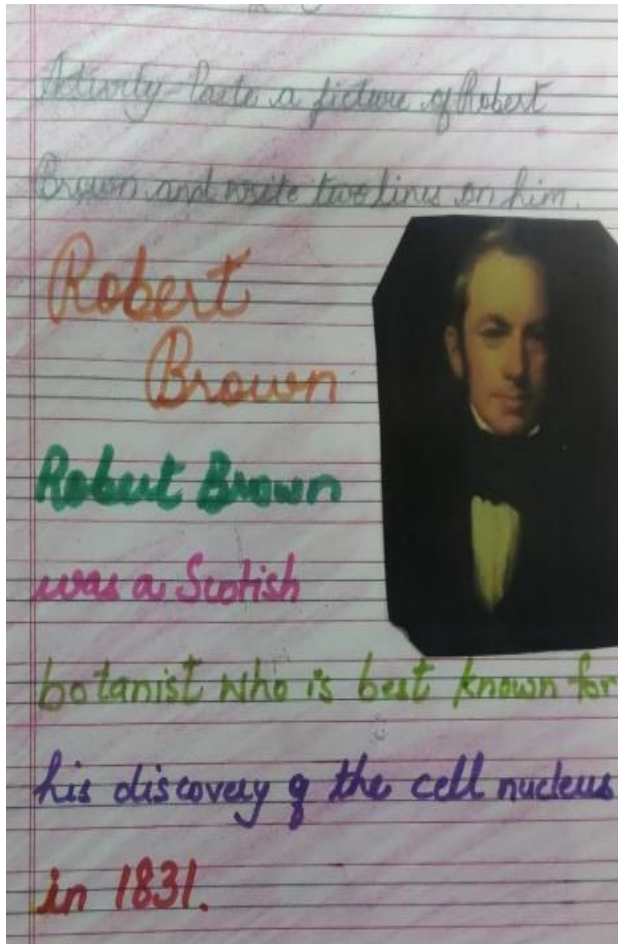 Activity - Paste a picture of Robert
Brown and write two lines on him.
Robert
Brown
Robert Brown
was a Scotish
botanist who is best known for
his discovery of the cell nucleus
in 1831.